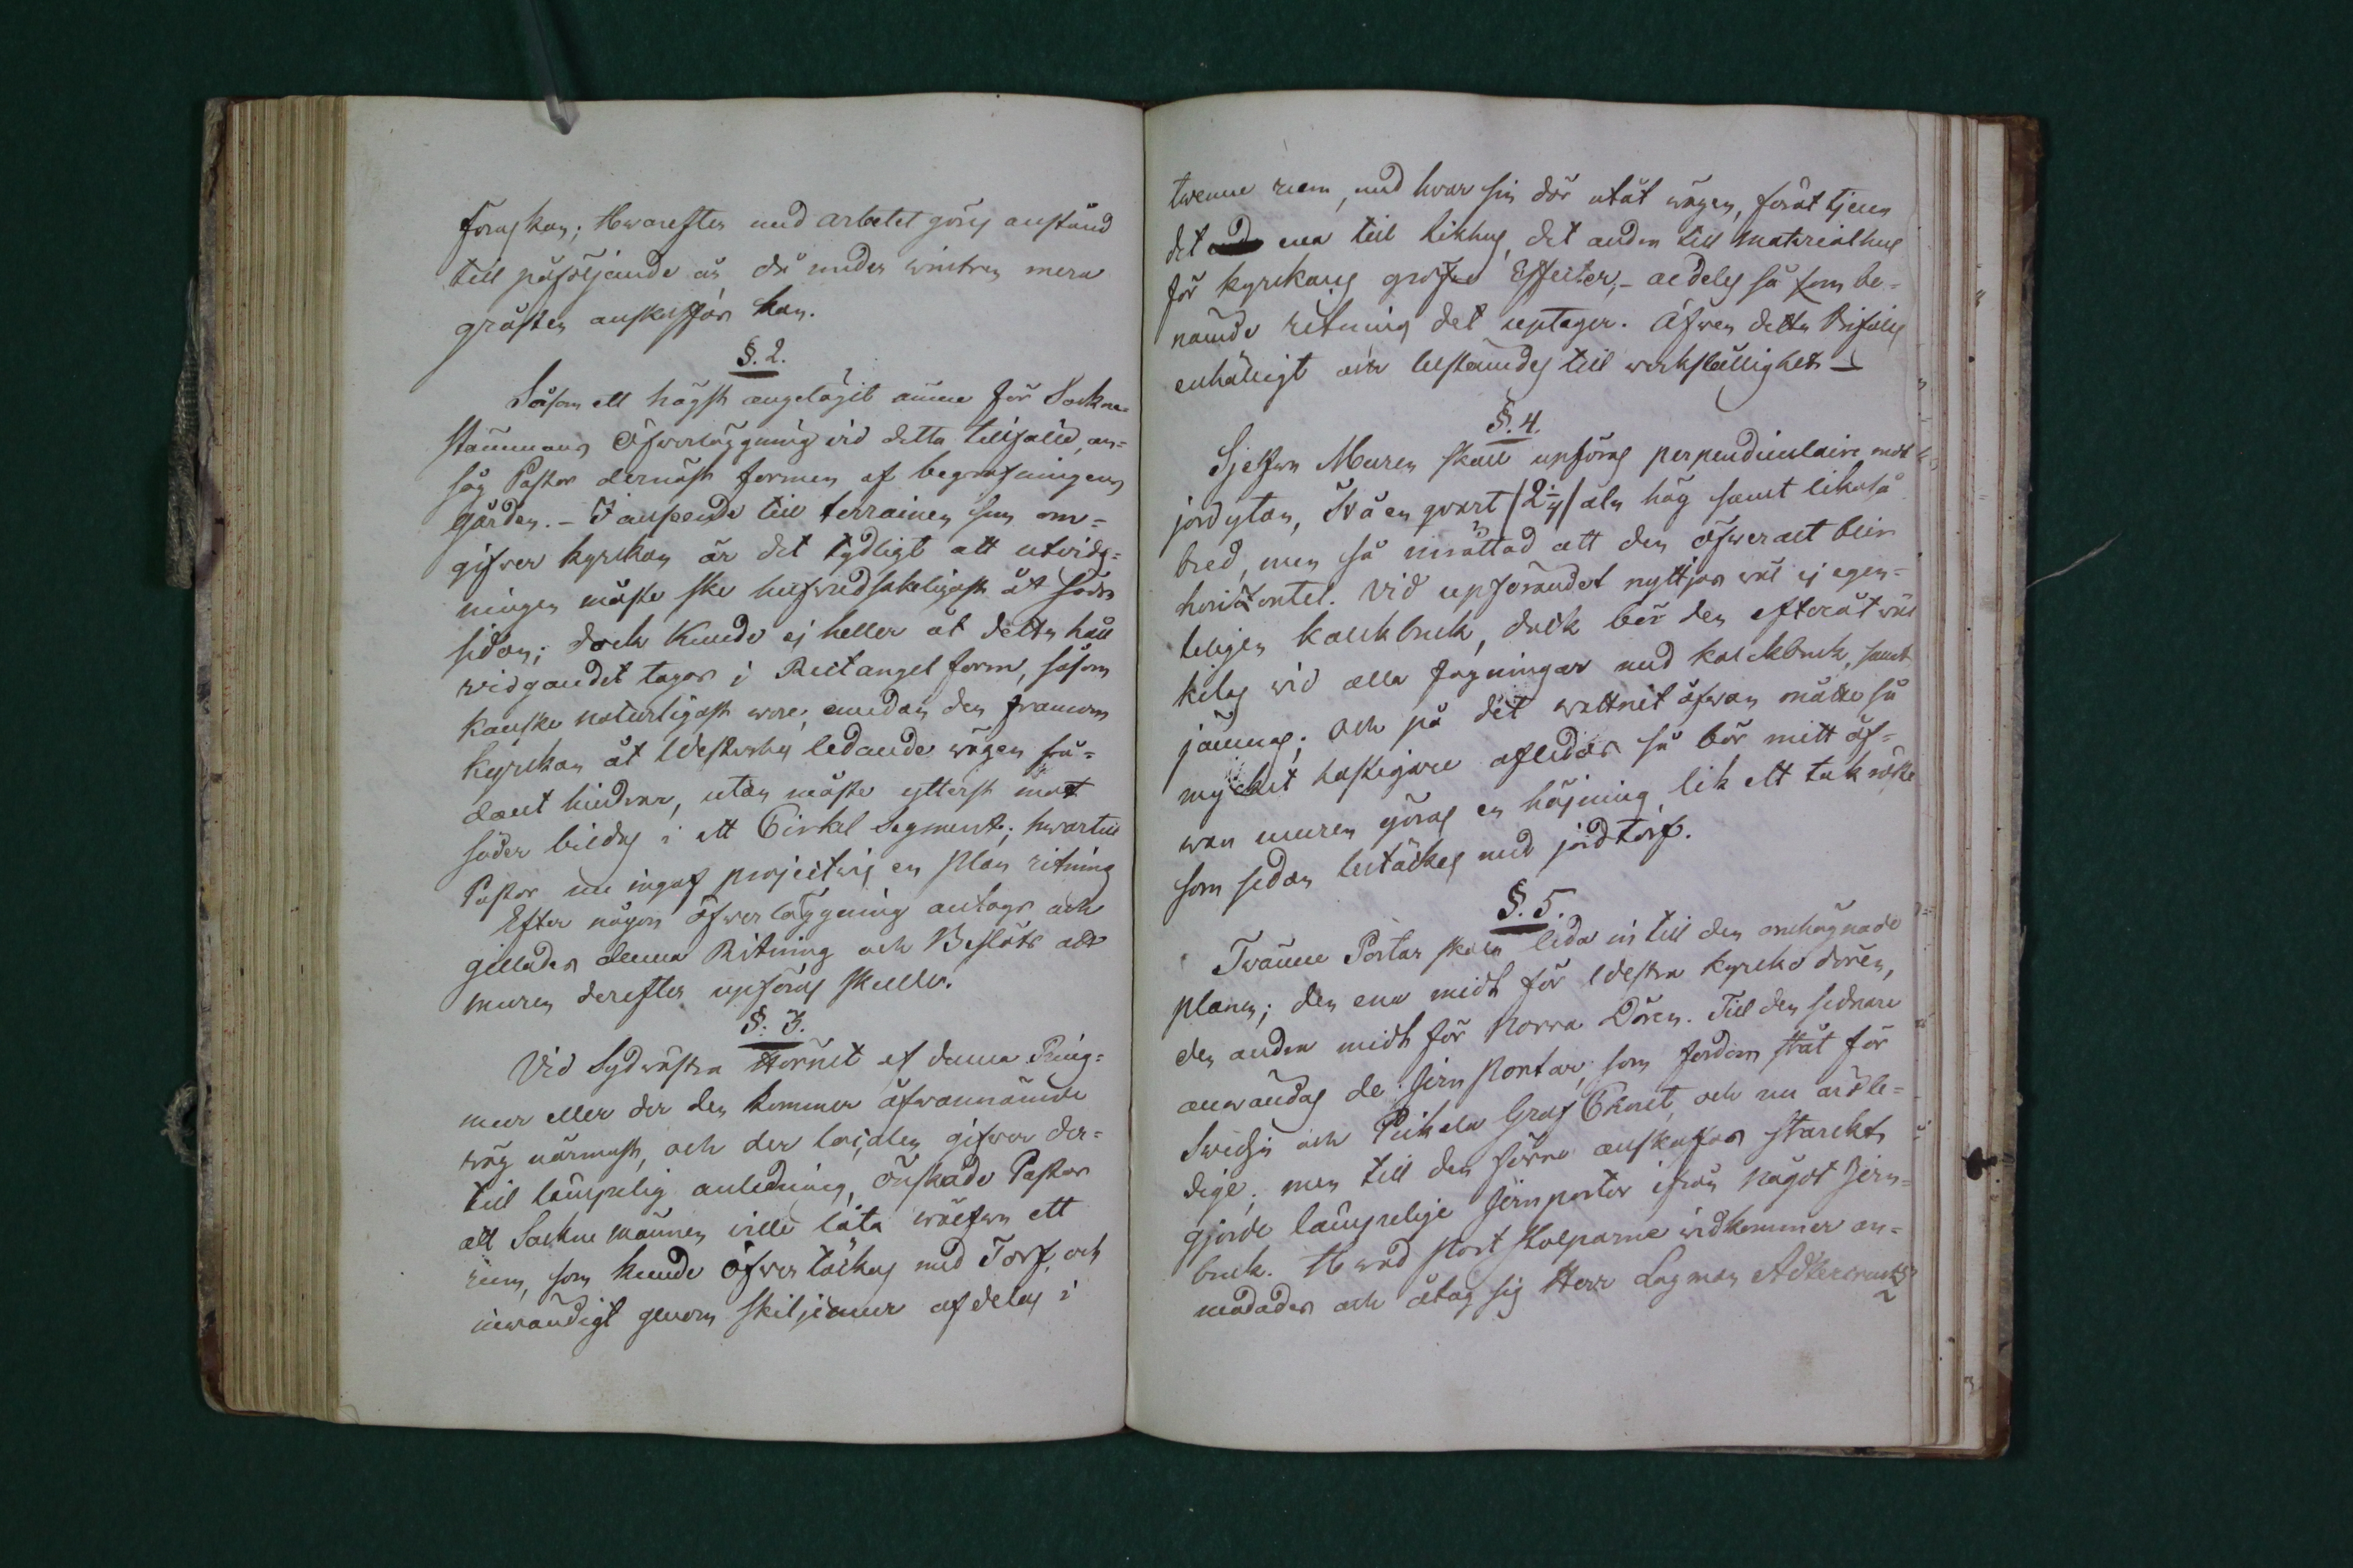 föras kan; Hwarefter med arbetet görs anstånd
till påföljande år, då under wintren mera
gråsten anskaffas kan.
§. 2.
Såsom ett högst angelägit ämne för Sockne-
stämmans Öfwerläggning vid detta tillfälle, an-
såg Pastor dernäst formen af begrafningens
gården. - I anseende till terrainen som om-
gifver kyrckan är det tydligt att utvidg-
ningen måste ske hufvudsakeligast åt södra
sidan; dock kunde ej heller åt detta håll
widgandet tagas i Rectangel form, såsom
kanske naturligast wore, emedan den framom
kyrckan åt Westerby ledande wägen så-
dant hindrar, utan måste ytterst mot
söder bildas i ett Cirkel Segment; hwartill
Pastor nu ingaf projectwis en plan ritning
Efter någon öfwerläggning antogs och
gillades denna Ritning och Beslöts att
muren derefter upföras skulle.
§. 3.
Vid Sydwästra Hörnet af denna Ring-
mur eller der den kommer ofwannämde
wäg närmast, och der localen gifver der-
till lämpelig anledning, önskade Pastor
att Sockne männen wille låta wälfwa ett
rum, som kunde öfwertäckas med Torf, och
inwändigt genom skiljemur afdelas i
twenne rum, med hvar sin dör utåt wägen, föråt tjena
det ena till Likhus, det andra till Materialhus
för kyrckans gröfre Effecter, - aldeles så som be-
nämde ritning det uptager. Äfwen detta bifölls
enhälligt och bestämdes till werkställighet
§. 4.
Sjelfwa Muren skall upföras perpendiculaire mot
jordytan, Två en qwart /2 1/4/ aln hög samt likaså
bred, men så inrättad att den öfweralt blir
horizontel. Vid upförandet nyttjas wäl ej egen-
teligen kalckbruk, dock bör den efteråt wäl
kilas wid alla fogningar med kalckbruk, samt
jämnas; och på det wattnet ofwan måtte så
mycket hastigare afledas så bör mitt öf-
wan muren göras en höjning, lik ett tak röste
som sedan betäckes med jordtorf.
§. 5.
Twänne Portar skola leda in till den omhägnade
planen; den ena midt för Westra kyrcko dören,
den andra midt för Norra Dören. Till den sednare
anwändas de Jern portar, som fordom stått för
Svidja och Pickala Graf Choret, och nu äro le-
dige, men till den förra anskaffas starckt
gjorde lämpelige Jernportar ifrån något Jern-
bruk. Hwad port stolparne widkommer an-
modades och åtog sig Herr Lagman Adlercreutz